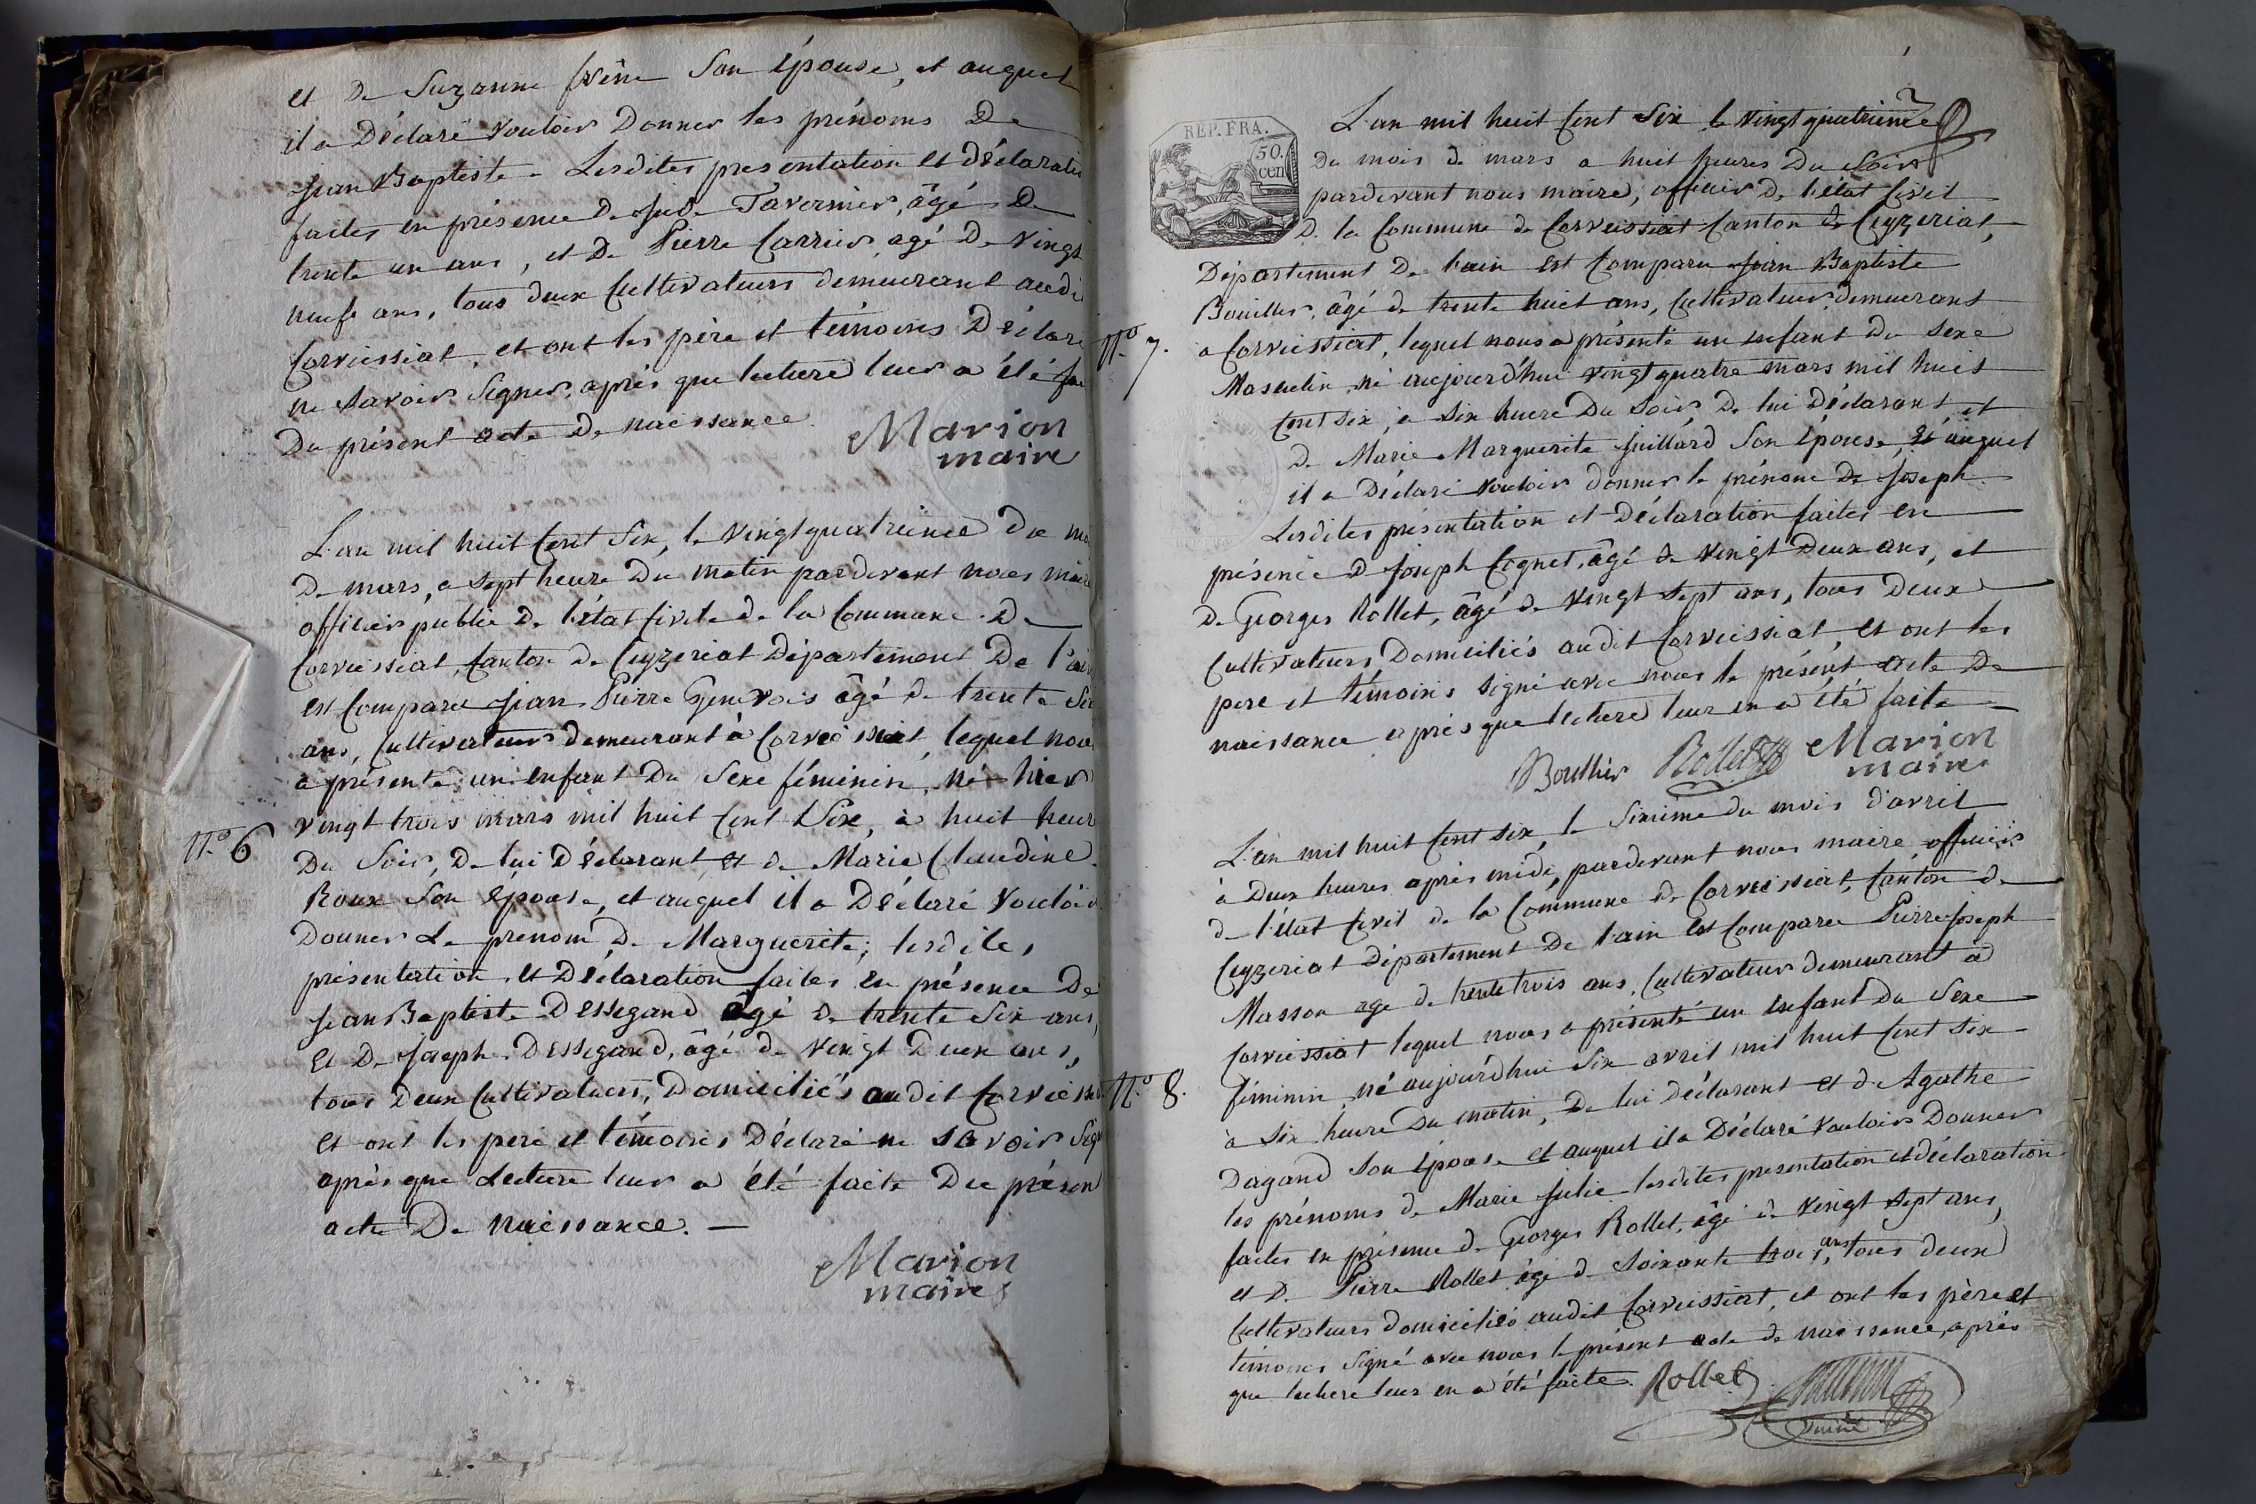 et De Suzanne frêne Son épouse, et auquel
il a Déclaré vouloir Donner les prénoms De
Jean Baptiste. Lesdites presentation et déclaratio
faites en présence De Jude Tavernier, âgé De
trente un ans, et De Pierre Carrier, agé De vingt
neuf ans, tous deux Cultivateurs demeurant audi
Corveissiat, et ont les père et témoins Déclaré
ne Savoir Signer, après que lecture leur a été fai
Du présent acte De naissance.
Marion
maire
L'an mil huit Cent Six, le vingt quatrième du moi
De mars, a Sept heure Du matin pardevant nous maire
officier public De l'état Civile de la Commune De
Corveissiat Canton De Ceyzeriat Département De l'ain
est Comparu Jean Pierre Genevois âgé De trente Six
ans, Cultivateur demeurant à Corveissiat, lequel nous
a présenté un enfant Du Sexe féminin, né hier
N.º 6
vingt trois mars mil huit Cent Six, à huit heur
Du Soir, De lui Déclarant et De Marie Claudine
Roux Son épouse, et auquel il a Déclaré Vouloir
Donner Le prenom De Marguerite; lesdites
présentation et Déclaration faites en présence De
Jean Baptiste Dessegand âgé De trente Six ans,
et De Joseph Dessegand, âgé De vingt Deux ans,
tous Deux Cultivateurs, Domiciliés audit Corveissi
et ont les pere et témoins Déclaré ne Savoir Sign
après que Lecture leur a été faite Du présen
acte De Naissance. —
Marion
maire
REP. FRA.
50.
cen
L'an mil huit Cent Six le vingt quatrieme
Du mois de mars a huit heures Du Soir
pardevant nous maire, officier De l'état Civil
De la Commune De Corveissiat Canton De Ceyzeriat,
Département De l'ain est Comparu Jean Baptiste
Bouiller, âgé de trente huit ans, Cultivateur demeurant
N.º 7.
a Corveissiat, lequel nous a présenté un enfant Du Sexe
Masculin né aujourd'hui vingt quatre mars mil huit
Cent six, a Six heure Du Soir De lui Déclarant, et
De Marie Marguerite Guillard Son épouse, Et auquel
il a Déclaré vouloir donner le prénom De Joseph.
Lesdites présentation et Déclaration faites en
présence De Joseph Cognet, âgé De vingt Deux ans, et
De Georges Rollet, âgé De vingt Sept ans, tous Deux
Cultivateurs Domiciliés audit Corveissiat, et ont les
pere et témoins signé avec nous le présent acte De
naissance après que lecture leur en a été faite
Bouiller Rollet Marion
maire
L'an mil huit Cent Six, le Sixieme du mois d'avril
à Deux heures après midi, pardevant nous maire officier
De l'état Civil De la Commune De Corveissiat, Canton De
Ceyzeriat Département De l'ain Est Comparu Pierre Joseph
Masson age De trente trois ans, Cultivateur demeurant à
Corveissiat lequel nous a présenté un enfant Du Sexe
N.º 8.
féminin, né aujourd'hui Six avril mil huit Cent Six
à Six heure Du matin, De lui Déclarant et De Agathe
Dagand Son épouse et auquel il a Déclaré Vouloir Donner
les prénoms De Marie Julie lesdites presentation et déclaration
faites en présence De Georges Rollet, âgé De vingt Sept ans,
et De Pierre Rollet âgé De Soixante trois ans, tous deux
Cultivateurs domiciliés audit Corveissiat, et ont les père et
témoins Signé avec nous le présent acte De naissance, après
que lecture leur en a été faite. Rollet Marion
maire